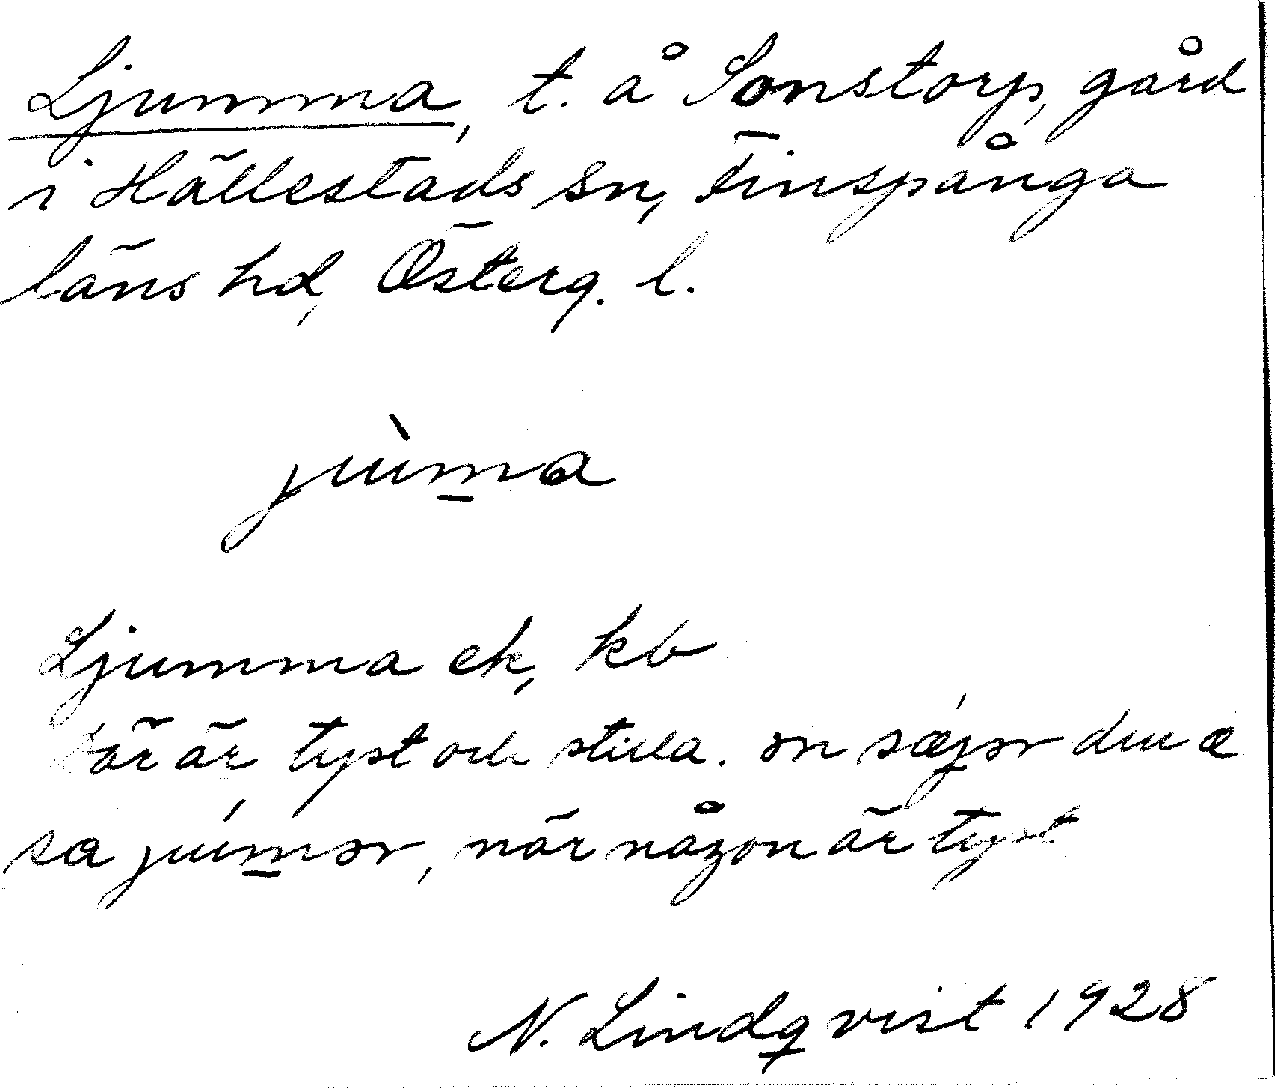 Ljumma, t. å Sonstorp, gård
i Hällestads sn, Finspånga
läns hd, Österg. l.
jùma
Ljumma ek, kb
där är tyst och stilla. ən sæjər du æ
sa júmər, när någon är tyst
N. Lindqvist 1928